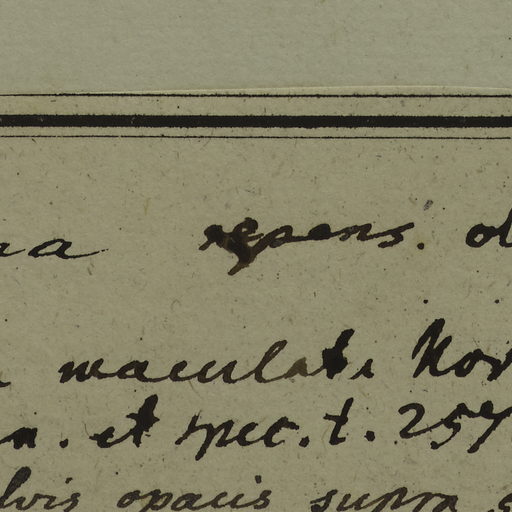 na repens. ol
maculati Nor
n. et spec. t. 257
lvis opacis supra